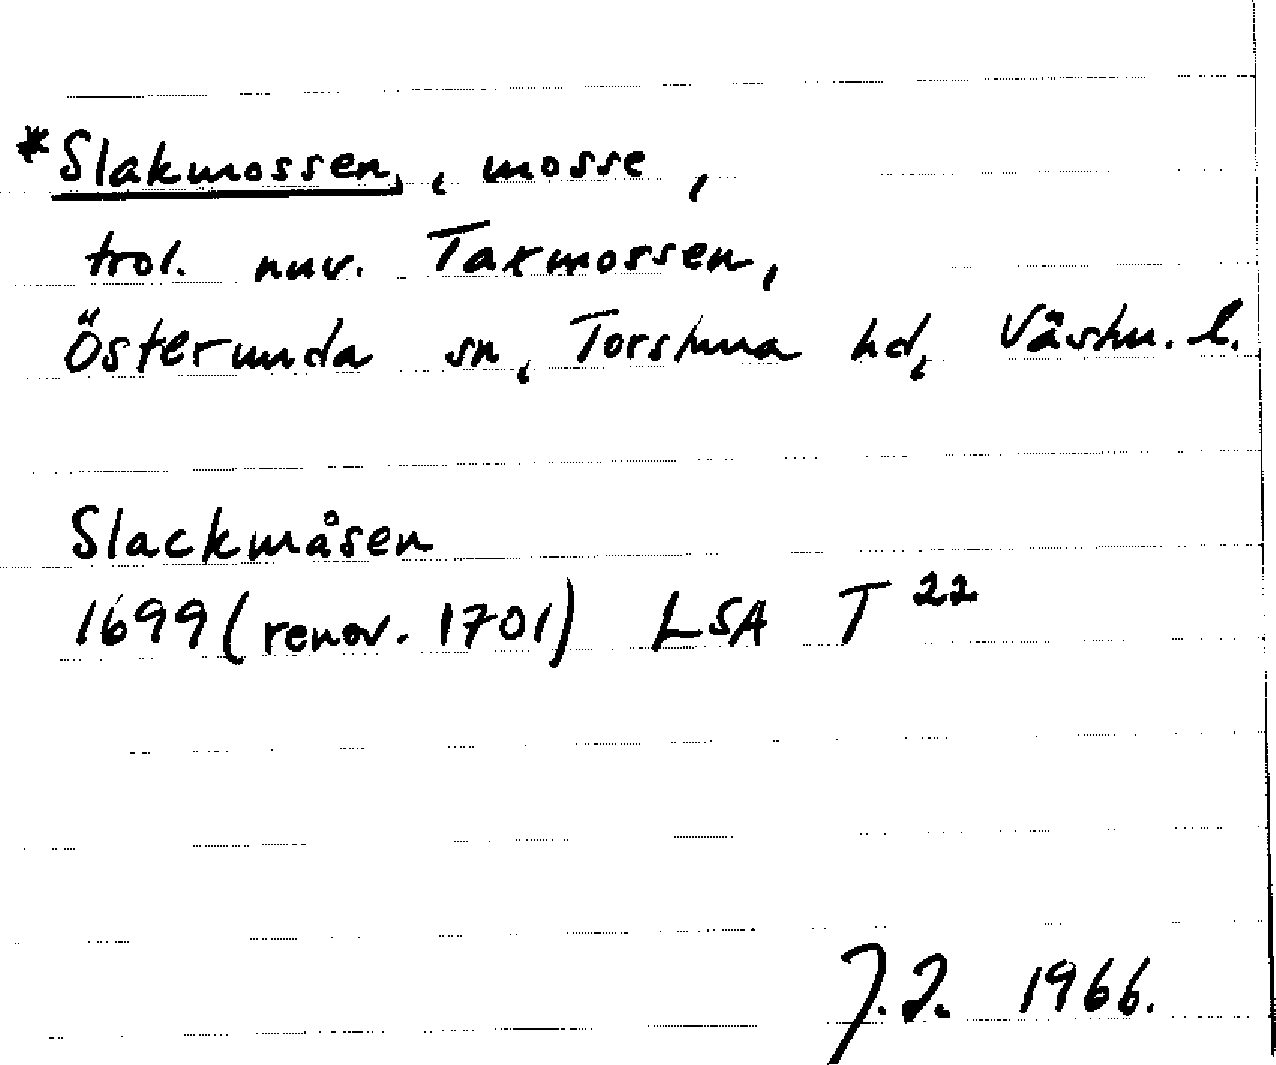 *Slakmossen, mosse,
trol. nuv. Taxmossen,
Österunda sn, Torstuna hd, Västm. l.
Slackmåsen
1699 (renov. 1701) LSA T 22
1966.